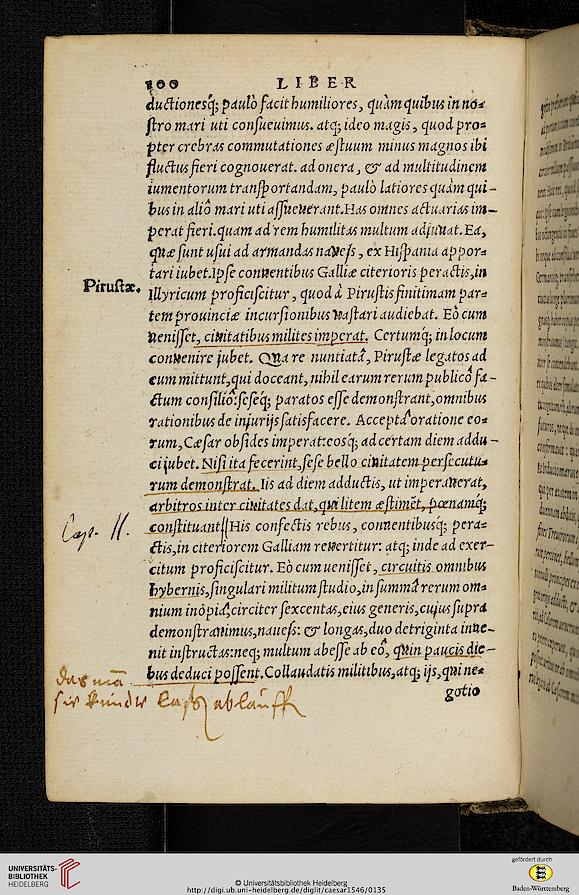 100 LIBER
ductionesq́; paulò facit humiliores, quàm quibus in no=
stro mari uti consueuimus. atq; ideo magis, quod pro=
pter crebras commutationes æstuum minus magnos ibi
fluctus fieri cognouerat. ad onera, & ad multitudinem
iumentorum transportandam, paulò latiores quàm qui-
bus in aliô mari uti assueuerant. Has omnes actuarias im-
perat fieri. quam ad rem humilitas multum adjuuat. Ea,
quæ sunt usui ad armandas naueis, ex Hispania appor=
tari iubet. Ipse conuentibus Galliæ citerioris peractis, in
Pirustæ.
Illyricum proficiscitur, quod à Pirustis finitimam par=
tem prouinciæ incursionibus uastari audiebat. Eò cum
uenisset, ciuitatibus milites imperat. Certumq́; in locum
conuenire jubet. Qua re nuntiatâ, Pirustæ legatos ad
eum mittunt, qui doceant, nihil earum rerum publicô fa-
ctum consiliô: seseq́; paratos esse demonstrant, omnibus
rationibus de injurijs satisfacere. Acceptâ oratione eo=
rum, Cæsar obsides imperat: eosq́; ad certam diem addu-
ci jubet. Nisi ita fecerint, sese bello ciuitatem persecutu=
rum demonstrat. Iis ad diem adductis, ut imperauerat,
arbitros inter ciuitates dat, qui litem æstimēt, pœnamq́;
Cap. II.
constituant. His confectis rebus, conuentibusq́; pera=
ctis, in citeriorem Galliam reuertitur: atq; inde ad exer-
citum proficiscitur. Eò cum uenisset, circuitis omnibus
hybernis, singulari militum studio, in summâ rerum om=
nium inopiâ, circiter sexcentas, eius generis, cujus supra
demonstrauimus, naueis: & longas, duo detriginta inue-
nit instructas: neq; multum abesse ab eô, quin paucis die-
bus deduci possent. Collaudatis militibus, atq; ijs, qui ne=
gotio
das mā
sie ablauffē
UNIVERSITÄTS-
BIBLIOTHEK
HEIDELBERG
© Universitätsbibliothek Heidelberg
http://digi.ub.uni-heidelberg.de/diglit/caesar1546/0135
gefördert durch
Baden-Württemberg